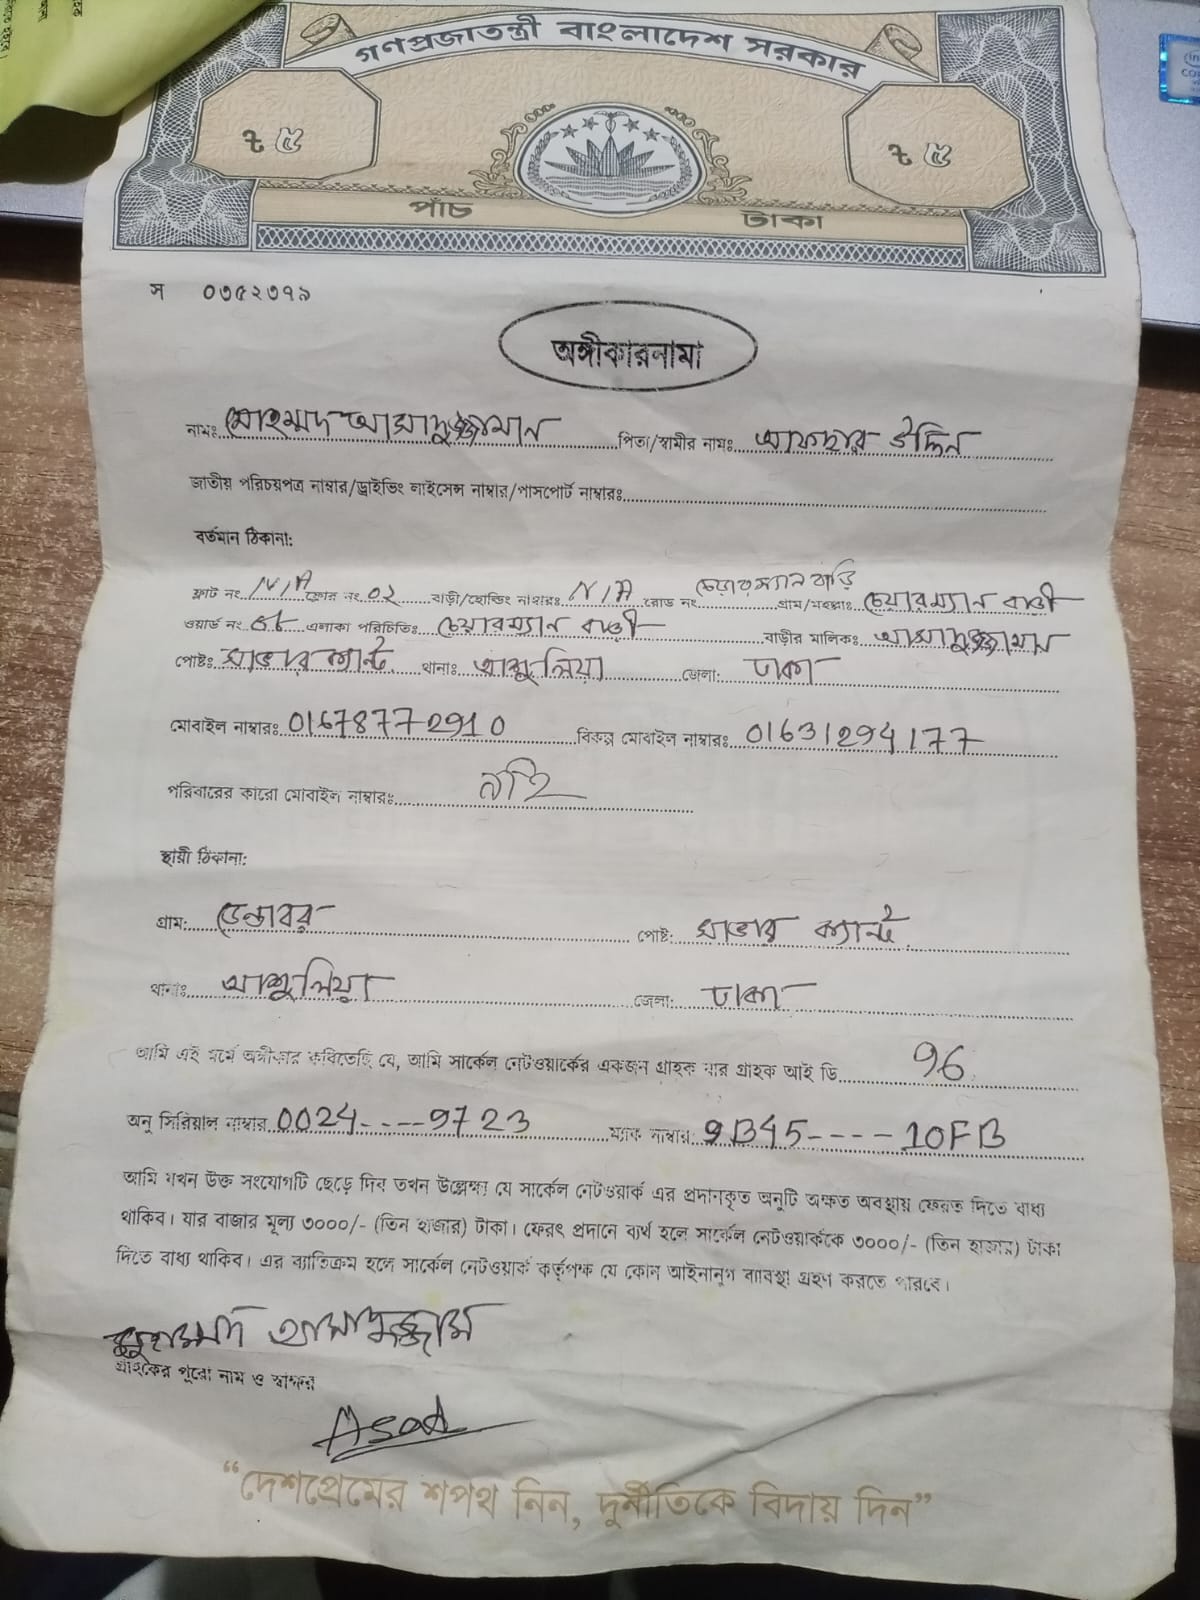 গণপ্রজাতন্ত্রী বাংলাদেশ সরকার
৳ ৫ ৳ ৫
পাঁচ টাকা
স ০৩৫২৩৭৯
অঙ্গীকারনামা
নামঃ মোহম্মদ আসাদুজ্জামান পিতা/স্বামীর নামঃ আফছার উদ্দিন
জাতীয় পরিচয়পত্র নাম্বার/ড্রাইভিং লাইসেন্স নাম্বার/পাসপোর্ট নাম্বারঃ
বর্তমান ঠিকানা:
ফ্লাট নং N/A ফ্লোর নং ০২ বাড়ী/হোল্ডিং নাম্বারঃ N/A রোড নং চেয়ারম্যান বাড়ি গ্রাম/মহল্লাঃ চেয়ারম্যান বাড়ী
ওয়ার্ড নং এলাকা পরিচিতিঃ চেয়ারম্যান বাড়ী বাড়ীর মালিকঃ আসাদুজ্জামান
পোষ্টঃ সাভার ক্যান্ট থানাঃ আশুলিয়া জেলা: ঢাকা
মোবাইল নাম্বারঃ 01678772910 বিকল্প মোবাইল নাম্বারঃ 01631294177
পরিবারের কারো মোবাইল নাম্বারঃ নাই
স্থায়ী ঠিকানা:
গ্রাম: ডেন্ডাবর পোষ্ট: সাভার ক্যান্ট
থানাঃ আশুলিয়া জেলা: ঢাকা
আমি এই মর্মে অঙ্গীকার করিতেছি যে, আমি সার্কেল নেটওয়ার্কের একজন গ্রাহক যার গ্রাহক আই ডি 96
অনু সিরিয়াল নাম্বার 0024----9723 ম্যাক নাম্বার: 9B45----10FB
আমি যখন উক্ত সংযোগটি ছেড়ে দিব তখন উল্লেক্ষ্য যে সার্কেল নেটওয়ার্ক এর প্রদানকৃত অনুটি অক্ষত অবস্থায় ফেরত দিতে বাধ্য
থাকিব। যার বাজার মূল্য ৩০০০/- (তিন হাজার) টাকা। ফেরৎ প্রদানে ব্যর্থ হলে সার্কেল নেটওয়ার্ককে ৩০০০/- (তিন হাজার) টাকা
দিতে বাধ্য থাকিব। এর ব্যাতিক্রম হলে সার্কেল নেটওয়ার্ক কর্তৃপক্ষ যে কোন আইনানুগ ব্যাবস্থা গ্রহণ করতে পারবে।
মুহাম্মদ আসাদুজ্জামান
গ্রাহকের পুরো নাম ও স্বাক্ষর
Asad
“দেশপ্রেমের শপথ নিন, দুর্নীতিকে বিদায় দিন”